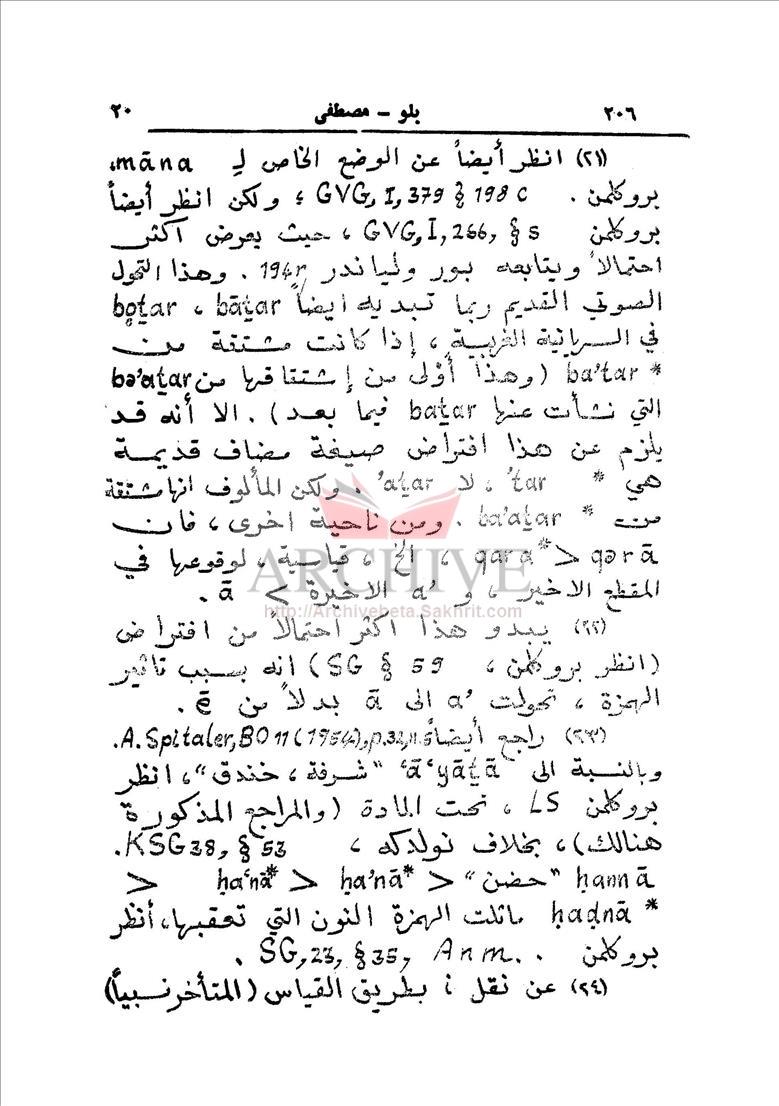 ٢٠٦ بلو - مصطفى ٢٠
(٢١) انظر أيضاً عن الوضع الخاص لِ māna،
بروكلمن . GVG, I, 379 § 198 c ؛ ولكن انظر أيضاً
بروكلمن GVG, I, 266, § s ، حيث يعرض أكثر
احتمالاً ويتابعه بور ولياندر 194r . وهذا التحول
الصوتي القديم ربما تبديه ايضاً bāṯar ، boṯar
في السريانية الغربية ، إذا كانت مشتقة من
* ba'tar (وهذا أوْلى من إشتقاقها من bə'aṯar
التي نشأت عنها baṯar فيما بعد) . الا أنه قد
يلزم عن هذا افتراض صيغة مضاف قديمة
هي * 'tar ، لا 'aṯar . ولكن المألوف انها مشتقة
من * ba'aṯar . ومن ناحية اخرى ، فان
qərā < *qara ، الخ ، قياسية ، لوقوعها في
المقطع الاخير ، و a' الاخيرة > ā .
(٢٢) يبدو هذا اكثر احتمالاً من افتراض
(انظر بروكلمن ، SG § 59) انه بسبب تاثير
الهمزة ، تحولت a' الى ā بدلاً من ē .
(٢٣) راجع أيضاً A. Spitaler, BO 11 (1954), p.32, n.5.
وبالنسبة الى 'ā'yāṯā "شرفة ، خندق"، انظر
بروكلمن LS ، تحت المادة (والمراجع المذكورة
هنالك)، بخلاف نولدكه ، KSG 38, § 53.
ḥannā "حضن" < *ḥa'nā < *ḥa'nā <
* ḥaḍnā ماثلت الهمزة النون التي تعقبها، أنظر
بروكلمن . SG, 23, § 35, Anm. .
(٢٤) عن نقل i بطريق القياس (المتأخر نسبياً)
ARCHIVE
http://Archivebeta.Sakhrit.com